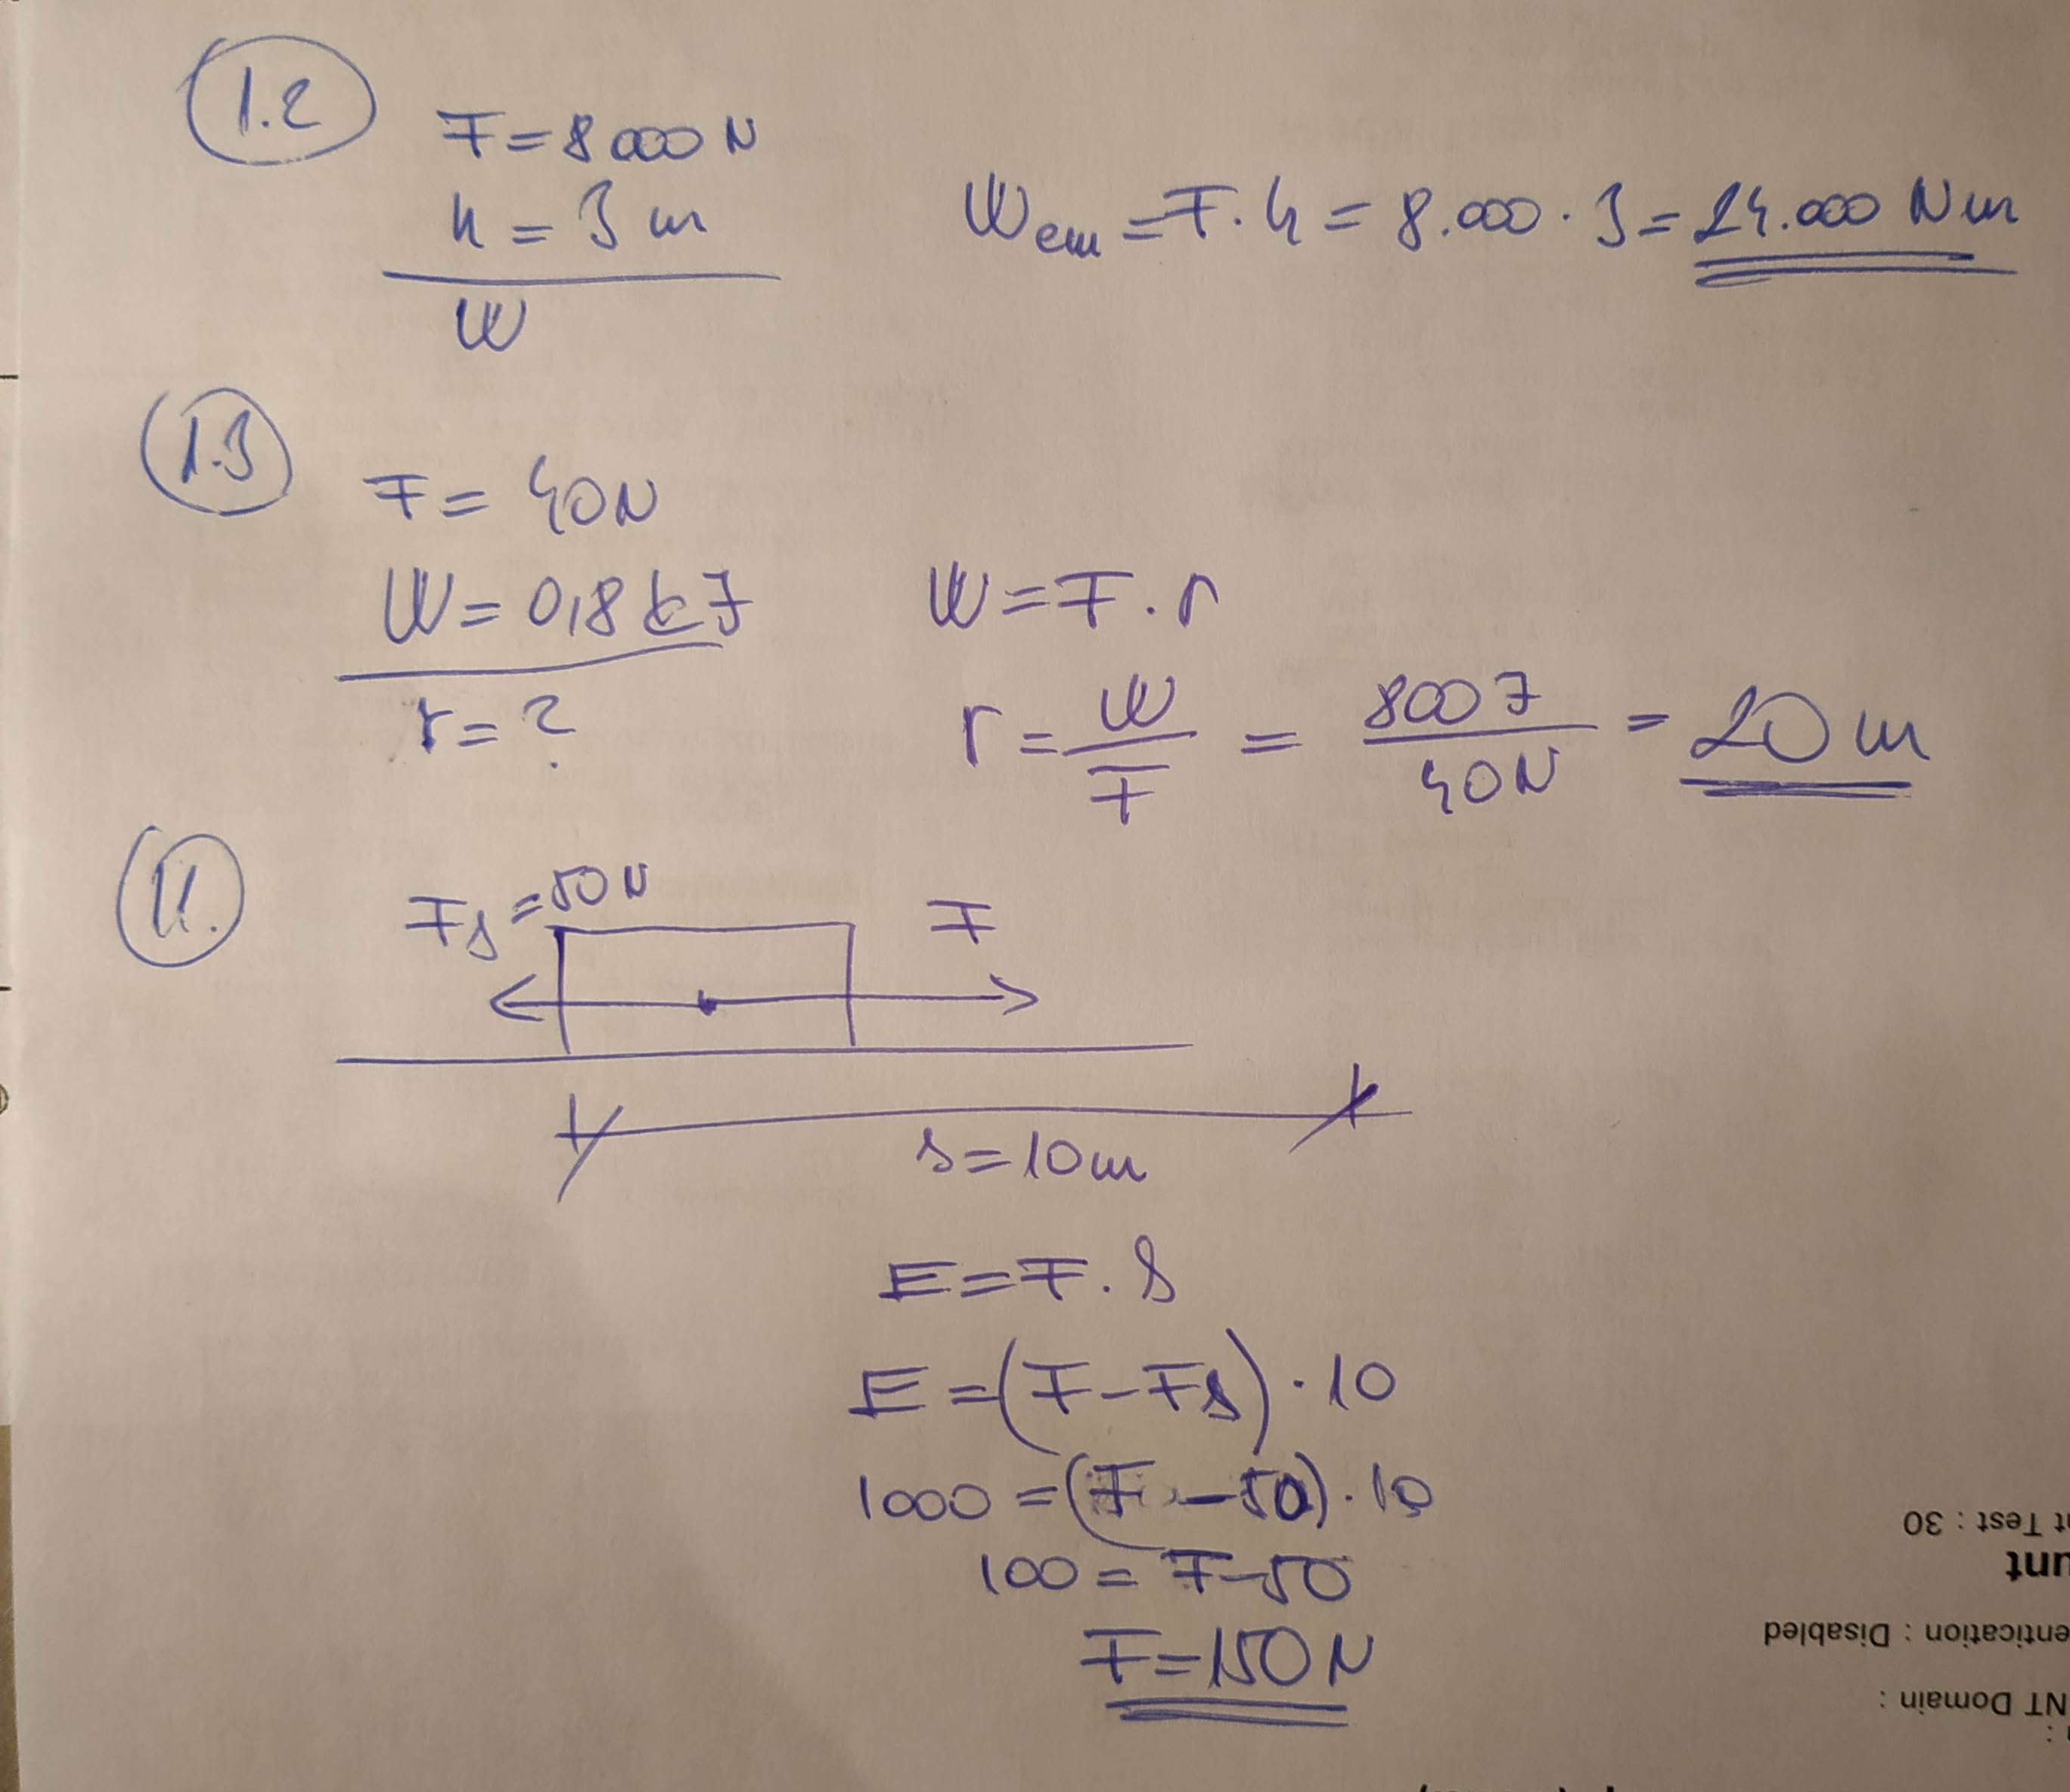 1.2
F = 8000 N
h = 3 m
W
W em = F · h = 8.000 · 3 = 24.000 Nm
1.3
F = 40N
W = 0,8 kJ
r = ?
W = F · r
r = W/F = 800 J/40N = 20 m
11.
Fs = 50 N
F
s = 10 m
E = F · s
E = (F - Fs) · 10
1000 = (F - 50) · 10
100 = F - 50
F = 150 N
t Test : 30
unt
entication : Disabled
NT Domain :